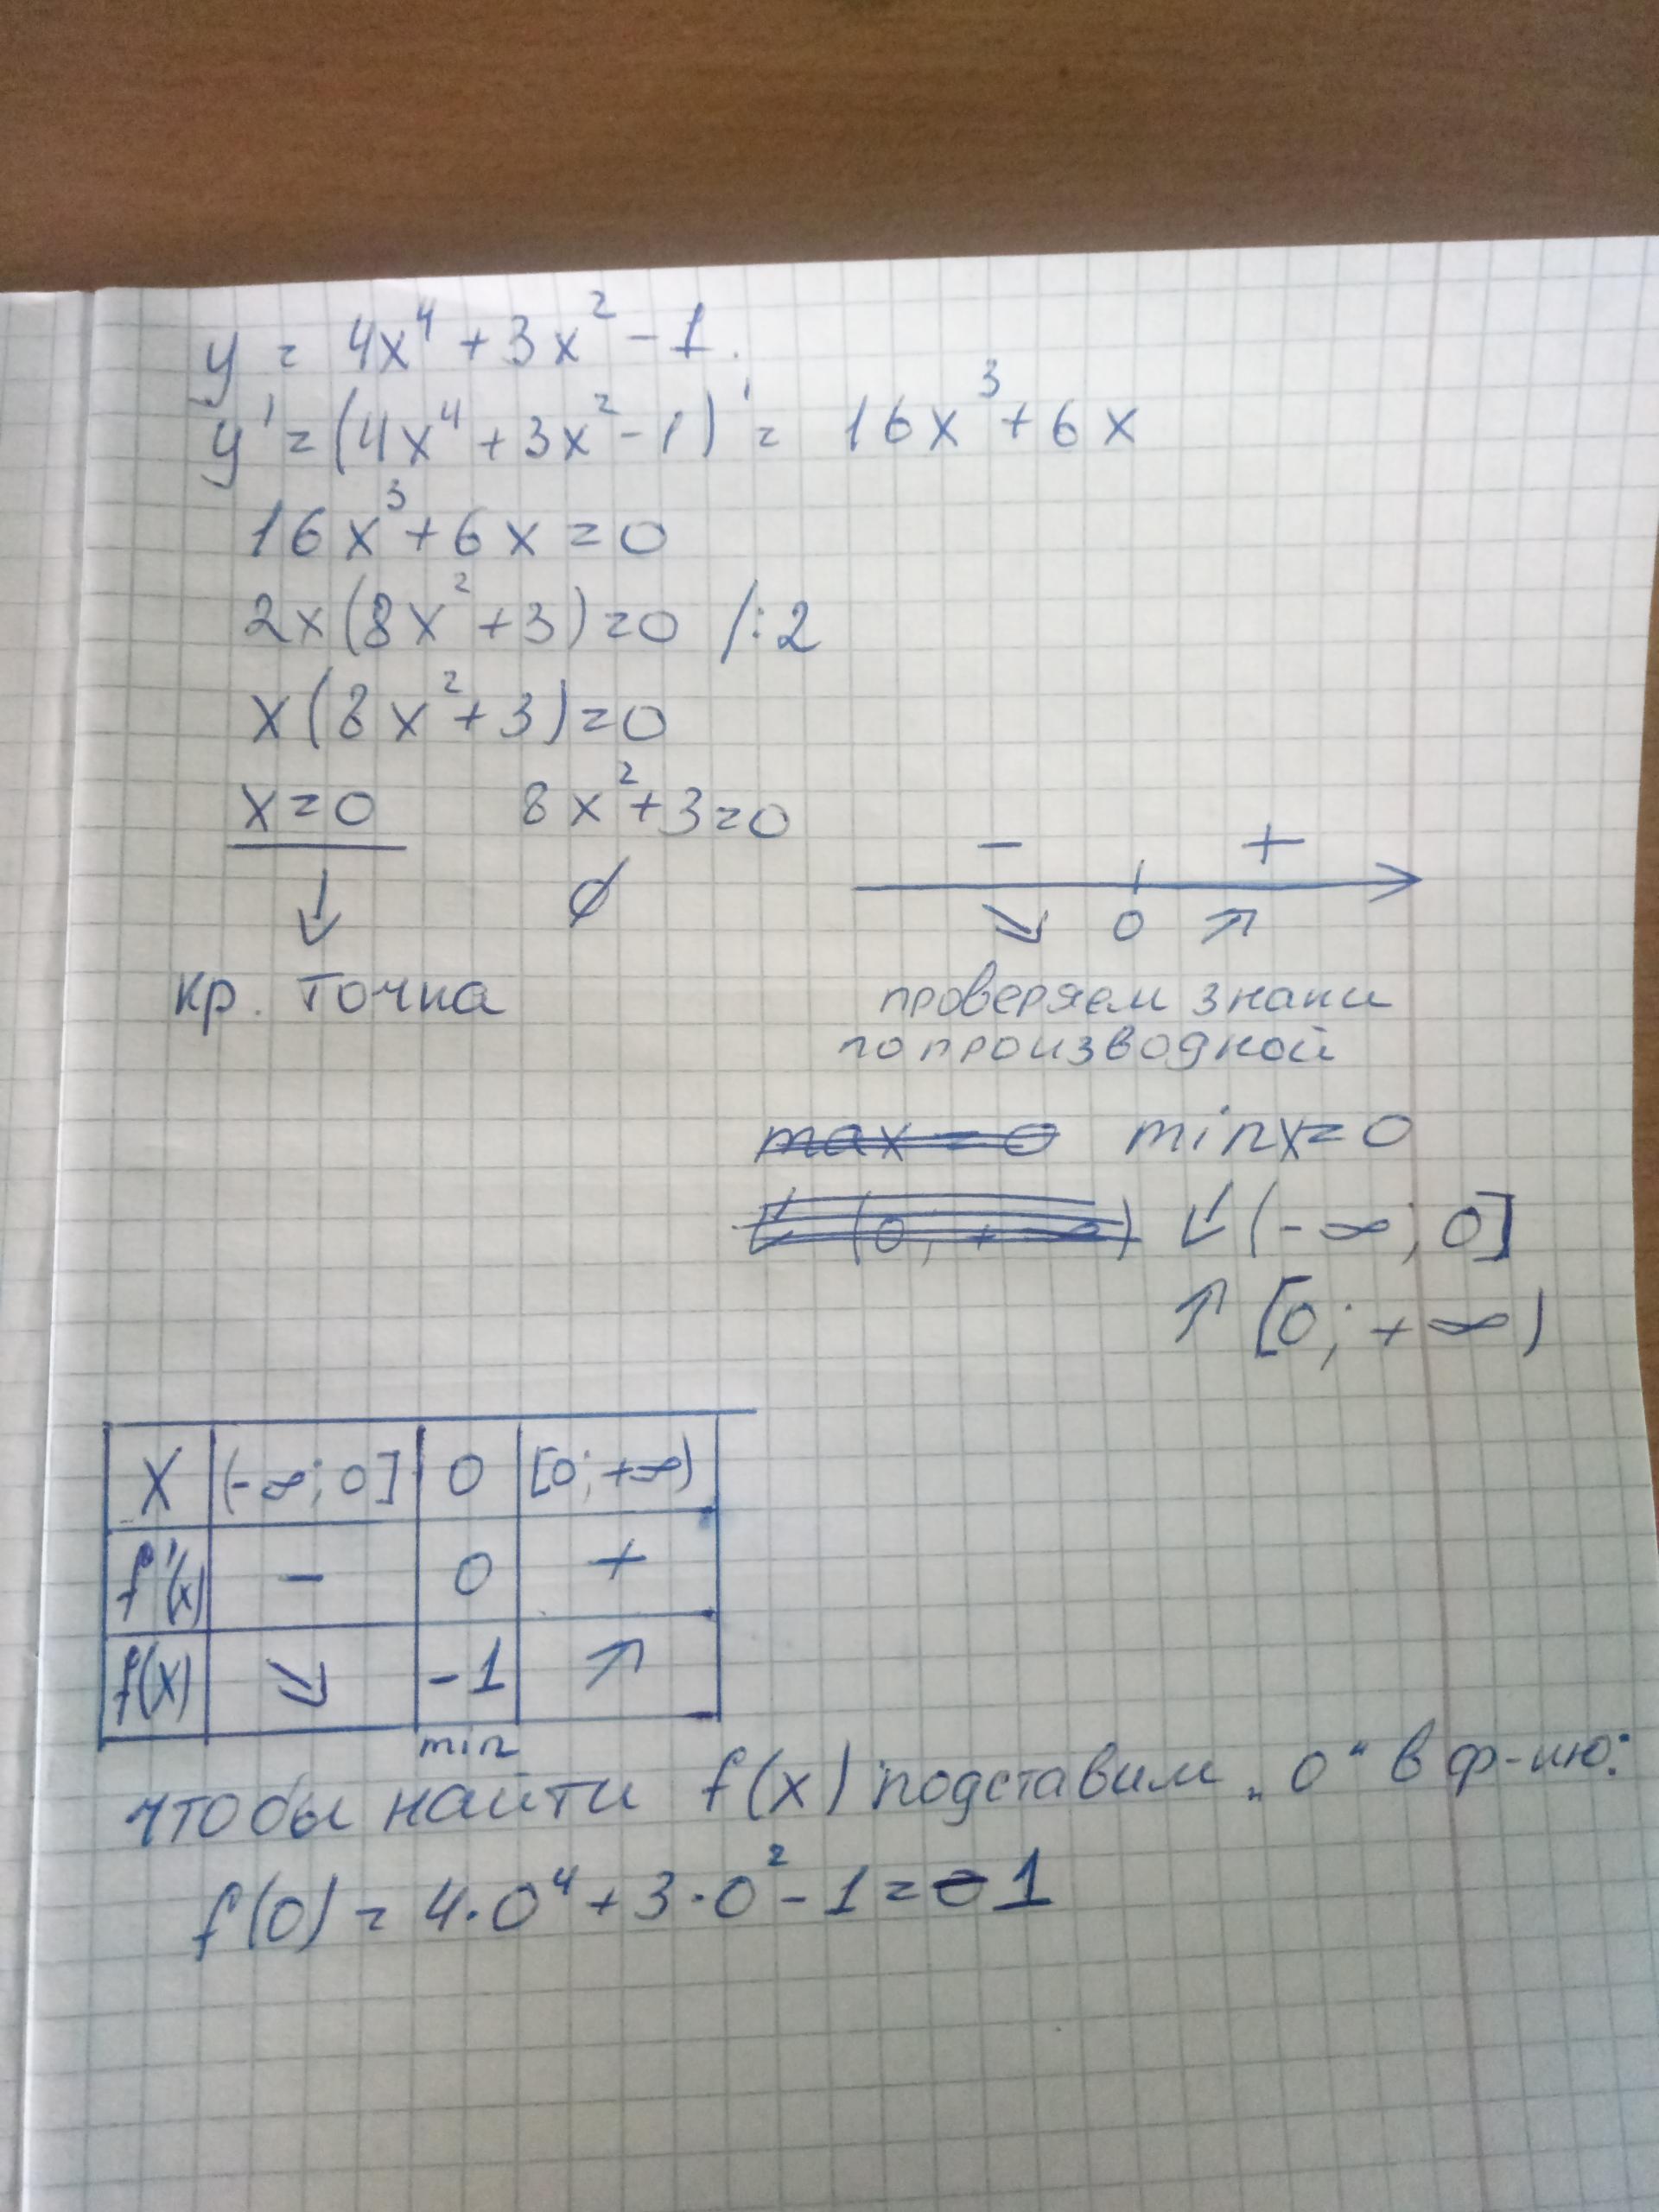 y = 4x⁴ + 3x² - 1.
y' = (4x⁴ + 3x² - 1)' = 16x³ + 6x
16x³ + 6x = 0
2x(8x² + 3) = 0 /:2
x(8x² + 3) = 0
x = 0 8x² + 3 = 0
- +
↓ ∅ ↘ 0 ↗
кр. точка проверяем знаки
по производной
max = 0 min x = 0
↙ (0; +∞) ↙ (-∞; 0]
↗ [0; +∞)
X (-∞; 0] 0 [0; +∞)
f'(x) - 0 +
f(x) ↘ -1 ↗
min
чтобы найти f(x) подставим „0“ в ф-ию:
f(0) = 4·0⁴ + 3·0² - 1 = -1